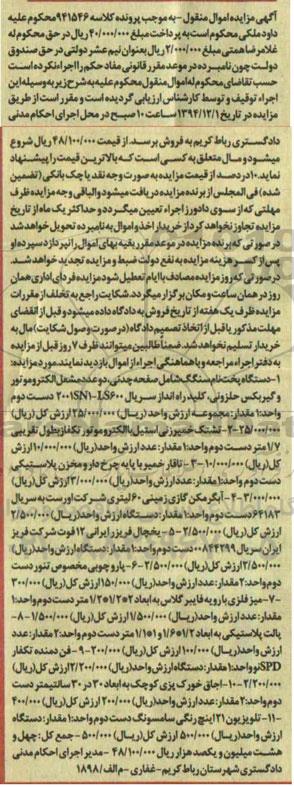 آگهی مزایده اموال منقول - به موجب پرونده کلاسه ۹۴۱۵۴۶ محکوم علیه
داود ملکی محکوم است به پرداخت مبلغ ۴۰/۰۰۰/۰۰۰ ریال در حق محکوم له
غلامرضا همتی مبلغ ۲/۰۰۰/۰۰۰ ریال بعنوان نیم عشر دولتی در حق صندوق
دولت چون نامبرده در موعد مقرر قانونی مفاد حکم را اجرا نکرده است
حسب تقاضای محکوم له اموال منقول محکوم علیه به شرح زیر به وسیله این
اجراء توقیف و توسط کارشناس ارزیابی گردیده است و مقرر است از طریق
مزایده در تاریخ ۱۳۹۴/۱۲/۱ ساعت ۱۰ صبح در محل اجرای احکام مدنی
دادگستری رباط کریم به فروش برسد. از قیمت ۴۸/۱۰۰/۰۰۰ ریال شروع
میشود و مال متعلق به کسی است که بالاترین قیمت را پیشنهاد
نماید. ۱۰ درصد از قیمت مزایده به صورت وجه نقد یا چک بانکی (تضمین
شده) فی المجلس از برنده مزایده دریافت میشود و الباقی وجه مزایده ظرف
مهلتی که از سوی دادورز اجراء تعیین میگردد و حداکثر یک ماه از تاریخ
مزایده تجاوز نخواهد کرد از خریدار اخذ و اموال به نامبرده تحویل خواهد شد
در صورتی که برنده مزایده در موعد مقرر بقیه بهای اموال را نپردازد سپرده او
پس از کسر هزینه مزایده به نفع دولت ضبط و مزایده تجدید خواهد شد.
در صورتی که روز مزایده مصادف با ایام تعطیل شود مزایده فردای اداری همان
روز در همان ساعت و مکان برگزار میگردد. شکایت راجع به تخلف از مقررات
مزایده ظرف یک هفته از تاریخ فروش به دادگاه داده میشود و قبل از انقضای
مهلت مذکور یا قبل از اتخاذ تصمیم دادگاه (در صورت وصول شکایت) مال به
خریدار تسلیم نخواهد شد. ضمنا طالبین میتوانند ظرف ۷ روز قبل از مزایده
به دفتر اجراء مراجعه و با هماهنگی اجراء از اموال بازدید نمایند. مورد مزایده:
۱- دستگاه پخت نام سنگک شامل صفحه چدنی، دو عدد مشعل الکتروموتور
و گیربکس حلزونی، کلید راه انداز سریال ۲۰۰۱SN۱-LS۶۰۰ دست دوم
واحد: ۱ مقدار: مجموعه ارزش واحد (ریال) ۲۵/۰۰۰/۰۰۰ ارزش کل (ریال)
۲۵/۰۰۰/۰۰۰ -۲- تشتک خمیرزنی استیل با الکتروموتور تکفاز بطول تقریبی
۱/۷ متر دست دوم واحد: ۱ مقدار: عدد ارزش واحد (ریال) ۱۰/۰۰۰/۰۰۰ ارزش
کل (ریال) ۱۰/۰۰۰/۰۰۰ -۳- تاقار خمیر با پایه چرخ دار و مخزن پلاستیکی
دست دوم واحد: ۱ مقدار: عدد ارزش واحد (ریال) ۳/۰۰۰/۰۰۰ ارزش کل (ریال)
۳/۰۰۰/۰۰۰ -۴- آبگرمکن گازی زمینی ۶۰ لیتری شرکت اورست به سریال
۶۴۱۸۳ دست دوم واحد: ۱ مقدار: دستگاه ارزش واحد (ریال) ۲/۵۰۰/۰۰۰
ارزش کل (ریال) ۲/۵۰۰/۰۰۰ -۵- یخچال فریزر ایرانی ۱۲ فوت شرکت فریز
ایران سریال ۰۰۸۴۴۲۹۹ دست دوم واحد: ۱ مقدار: دستگاه ارزش واحد (ریال)
۲/۵۰۰/۰۰۰ ارزش کل (ریال) ۲/۵۰۰/۰۰۰ -۶- پاروچوبی مخصوص تنور دست
دوم واحد: ۲ مقدار: عدد ارزش واحد (ریال) ۱۵۰/۰۰۰ ارزش کل (ریال) ۳۰۰/۰۰۰
-۷- میز فلزی با رویه فایبر گلاس به ابعاد ۱/۲*۱/۲ متر دست دوم واحد: ۱
مقدار: عدد ارزش واحد (ریال) ۱/۵۰۰/۰۰۰ ارزش کل (ریال) ۱/۵۰۰/۰۰۰ -۸-
پالت پلاستیکی به ابعاد ۱/۶*۱/۲ و ۱*۱/۱ متر دست دوم واحد: ۲ مقدار: عدد
ارزش واحد (ریال) ۱۰۰/۰۰۰ ارزش کل (ریال) ۲۰۰/۰۰۰ -۹- فن دمنده تکفاز
SPD نو واحد: ۱ مقدار: دستگاه ارزش واحد (ریال) ۲/۲۰۰/۰۰۰ ارزش کل (ریال)
۲/۲۰۰/۰۰۰ -۱۰- اجاق خوراک پزی کوچک به ابعاد ۳۰ در ۳۰ سانتیمتر دست
دوم واحد: ۲ مقدار: عدد ارزش واحد (ریال) ۲۰۰/۰۰۰ ارزش کل (ریال) ۴۰۰/۰۰۰
-۱۱- تلویزیون ۲۱ اینچ رنگی سامسونگ دست دوم واحد: ۱ مقدار: دستگاه
ارزش واحد (ریال) ۵۰۰/۰۰۰ ارزش کل (ریال) ۵۰۰/۰۰۰ - جمع کل: چهل و
هشت میلیون و یکصد هزار ریال ۴۸/۱۰۰/۰۰۰ - مدیر اجرای احکام مدنی
دادگستری شهرستان رباط کریم - غفاری - م الف/۱۸۹۸